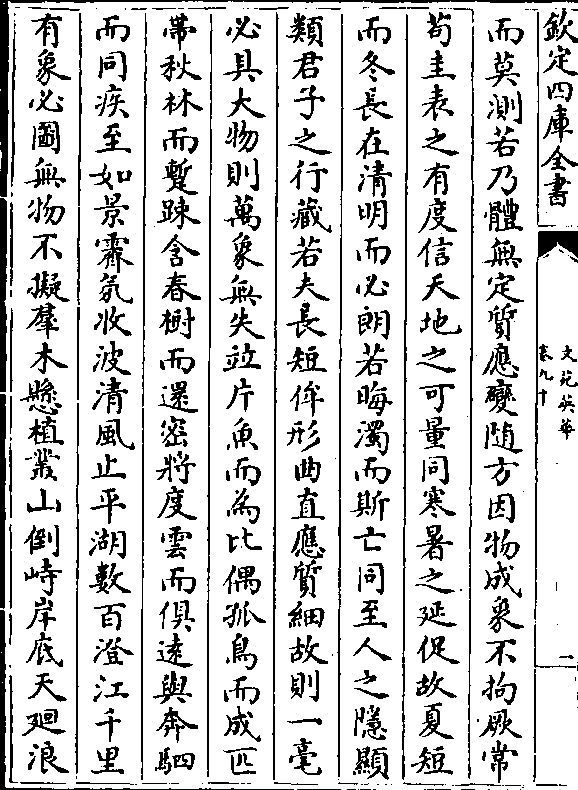 欽定四庫全書
文苑英華
卷九十
二
而莫測若乃體無定質應變随方因物成象不拘厥常
苟圭表之有度信天地之可量同寒暑之延促故夏短
而冬長在清明而必朗若晦濁而斯亡同至人之隱顯
類君子之行藏若夫長短侔形曲直應質細故則一毫
必具大物則萬象無失竝片魚而為比偶孤鳥而成匹
帶秋林而蹔踈含春樹而還密將度雲而俱逺與奔駟
而同疾至如景霽氛收波清風止平湖數百澄江千里
有象必圖無物不擬羣木懸植叢山倒峙岸底天廻浪